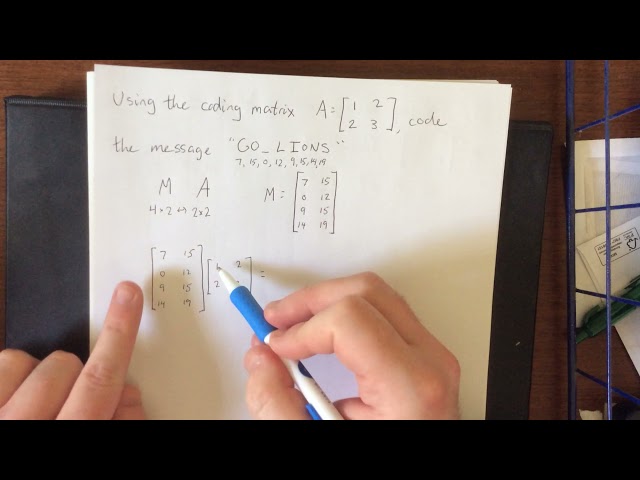 Using the coding matrix A = [1 2
2 3], code
the message "GO_LIONS"
7, 15, 0, 12, 9, 15, 14, 19
M A
4×2 ↔ 2×2
M = [7 15
0 12
9 15
14 19]
[7 15
0 12
9 15
14 19] [ 2
2 ] =